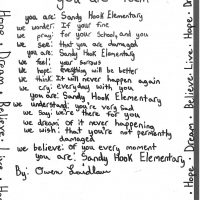 you are: Sandy Hook Elementary
we wonder: If your fine
we pray: for your School, and you
we see: that you are damaged
you are: Sandy Hook Elementary
we feel: your sorrows
we hope: everything will be better
we think it will never happen again
we cry: everyday with you
you are: Sandy Hook Elementary
we understand: you're very sad
we say: we're there for you
we dream: of it never happening
we wish: that you're not permanently
damaged
we believe: of you every moment
you are: Sandy Hook Elementary
By: Owen
Hope · Dream · Believe · Live
Hope · Dream · Believe · Live · Hope